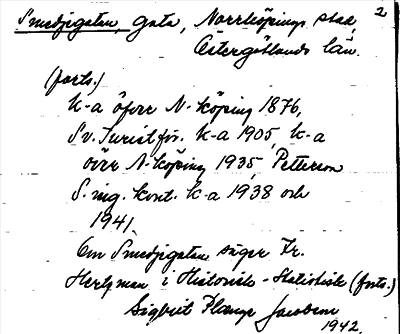 Smedjegatan, gata, Norrköpings stad, 2
Östergötlands län.
(forts.)
K-a öfver N-köping 1876,
Sv. Turistför. k-a 1905, k-a
över N-köping 1935, Petterson
S. ing. kont. k-a 1938 och
1941.
Om Smedjegatan säger Fr.
Hertzman i Historisk-Statistisk (forts.)
Sigbrit Plænge Jacobson
1942.